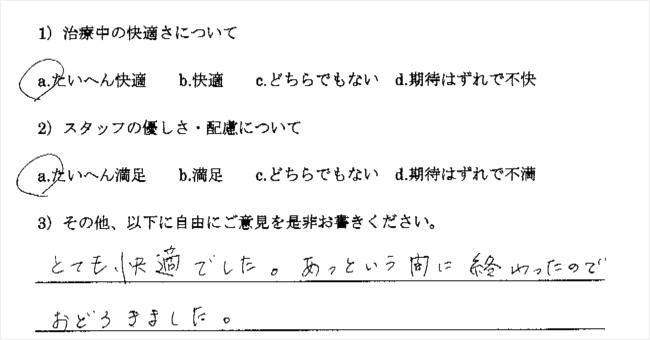 1) 治療中の快適さについて
a.たいへん快適 b.快適 c.どちらでもない d.期待はずれで不快
2) スタッフの優しさ・配慮について
a.たいへん満足 b.満足 c.どちらでもない d.期待はずれで不満
3) その他、以下に自由にご意見を是非お書きください。
とても快適でした。あっという間に終わったので
おどろきました。